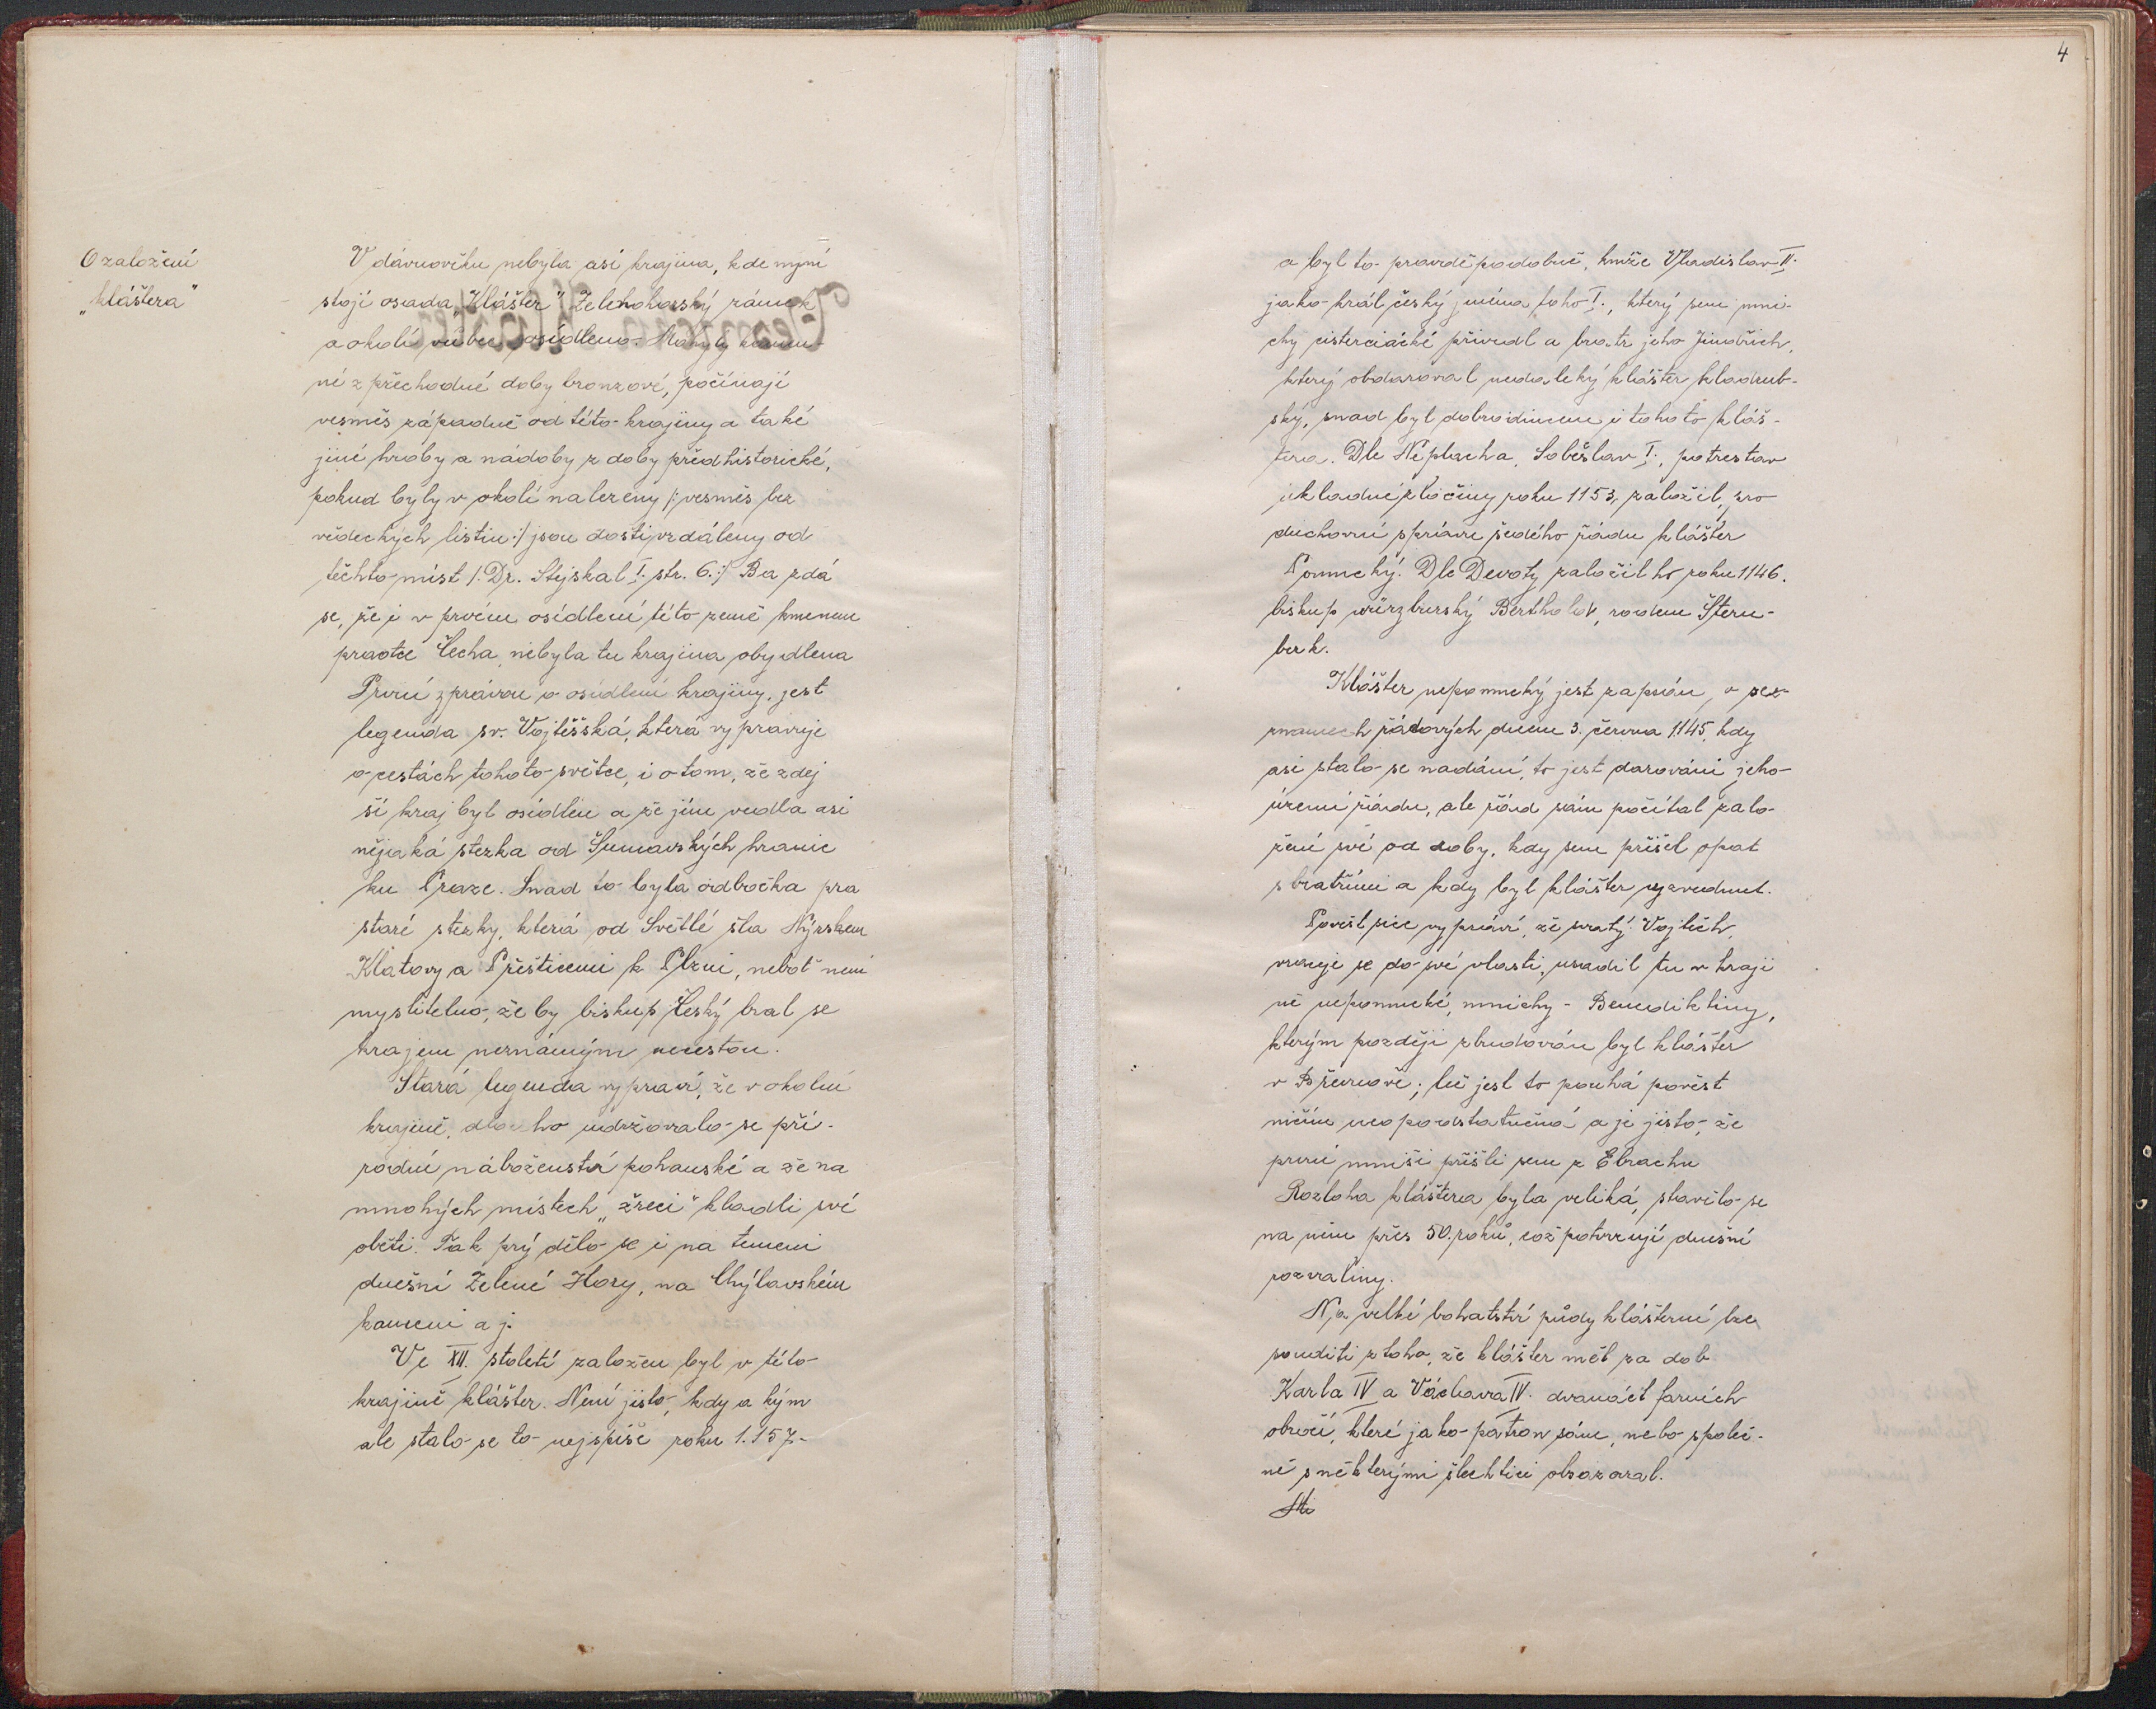 O založení
„kláštera"
V dávnověku nebyla asi krajina, kde nyní
stojí osada „Klášter" Zelenohorský zámek
a okolí vůbec osídleno. Mohyly kamen-
né z přechodné doby bronzové, počínají
vesměs západně od této krajiny a také
jiné hroby a nádoby z doby předhistorické,
pokud byly v okolí nalezeny /: vesměs bez
vědeckých listin :/ jsou dosti vzdáleny od
těchto míst /: Dr. Stejskal I. str. 6. :/ Ba zdá
se, že i v prvém osídlení této země kmenem
praotce Čecha, nebyla tu krajina obydlena
První zprávou o osídlení krajiny, jest
legenda sv. Vojtěšská, která vypravuje
o cestách tohoto světce, i o tom, že zdej
ší kraj byl osídlen a že jím vedla asi
nějaká stezka od Šumavských hranic
ku Praze. Snad to byla odbočka pra
staré stezky, která od Světlé šla Nýrskem
Klatovy a Přešticemi k Plzni, neboť není
myslitelno, že by biskup český bral se
krajem neznámým necestou.
Stará legenda vypraví, že v okolní
krajině, dlouho udržovalo se pří-
rodní náboženství pohanské a že na
mnohých místech „žreci" kladli své
oběti. Tak prý dělo se i na temeni
dnešní Zelené Hory, na Chýlavském
kameni a j.
Ve XII. století založen byl v této
krajině klášter. Není jisto, kdy a kým
ale stalo se to nejspíše roku 1157-
4
a byl to pravděpodobně, kníže Vladislav II.
jako král český jména toho I., který sem mni-
chy cisterciácké přivedl a bratr jeho Jindřich,
který obdaroval nedaleký klášter kladrub-
ský, snad byl dobrodincem i tohoto kláš-
tera. Dle Neplacha, Soběslav I., potrestav
úkladné zločiny roku 1153, založil, pro
duchovní správu šedého řádu klášter
Pomucký. Dle Devoty založil ho roku 1146.
biskup würzburský Berthold, rodem Štern-
berk.
Klášter nepomucký jest zapsán, v sez-
namech řádových dnem 3. června 1145, kdy
asi stalo se nadání, to jest darování jeho
území řádu, ale řád sám počítal zalo-
žení své od doby, kdy sem přišel opat
s bratřími a kdy byl klášter vyzvednut.
Pověst sice vypráví, že svatý Vojtěch,
vraceje se do své vlasti, usadil tu v kraji
ně nepomucké, mnichy - Benediktiny,
kterým později zbudován byl klášter
v Břevnově; leč jest to pouhá pověst
ničím neopodstatněná a je jisto, že
první mniši přišli sem z Ebrachu
Rozloha kláštera byla veliká, stavělo se
na něm přes 50. roků, což potvrzují dnešní
rozvaliny.
Na velké bohatství půdy klášterní lze
souditi z toho, že klášter měl za dob
Karla IV a Václava IV. dvanáct farních
obročí, které jako patron sám, nebo společ-
ně s některými šlechtici obsazoval.